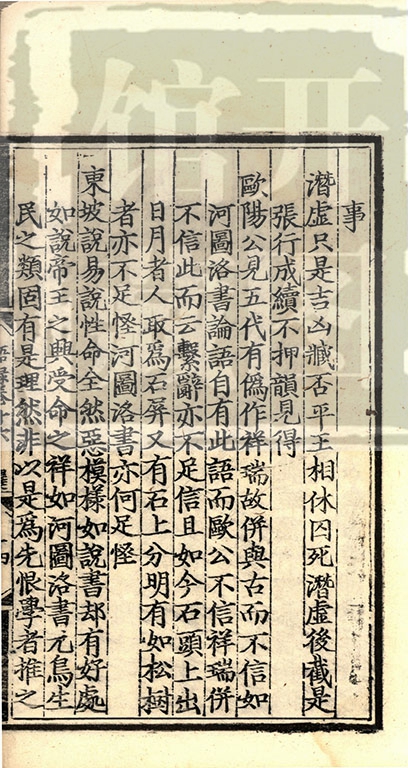 事
潛虛只是吉凶臧否平王相休囚死潛虛後截是
張行成續不押韻見得
歐陽公見五代有僞作祥瑞故併與古而不信如
河圖洛書論語自有此語而歐公不信祥瑞併
不信此而云繫辭亦不足信且如今石頭上出
日月者人取爲石屏又有石上分明有如松樹
者亦不足怪河圖洛書亦何足怪
東坡說易說性命全然惡模樣如說書却有好處
如說帝王之興受命之祥如河圖洛書元鳥生
民之類固有是理然非以是爲先恨學者推之